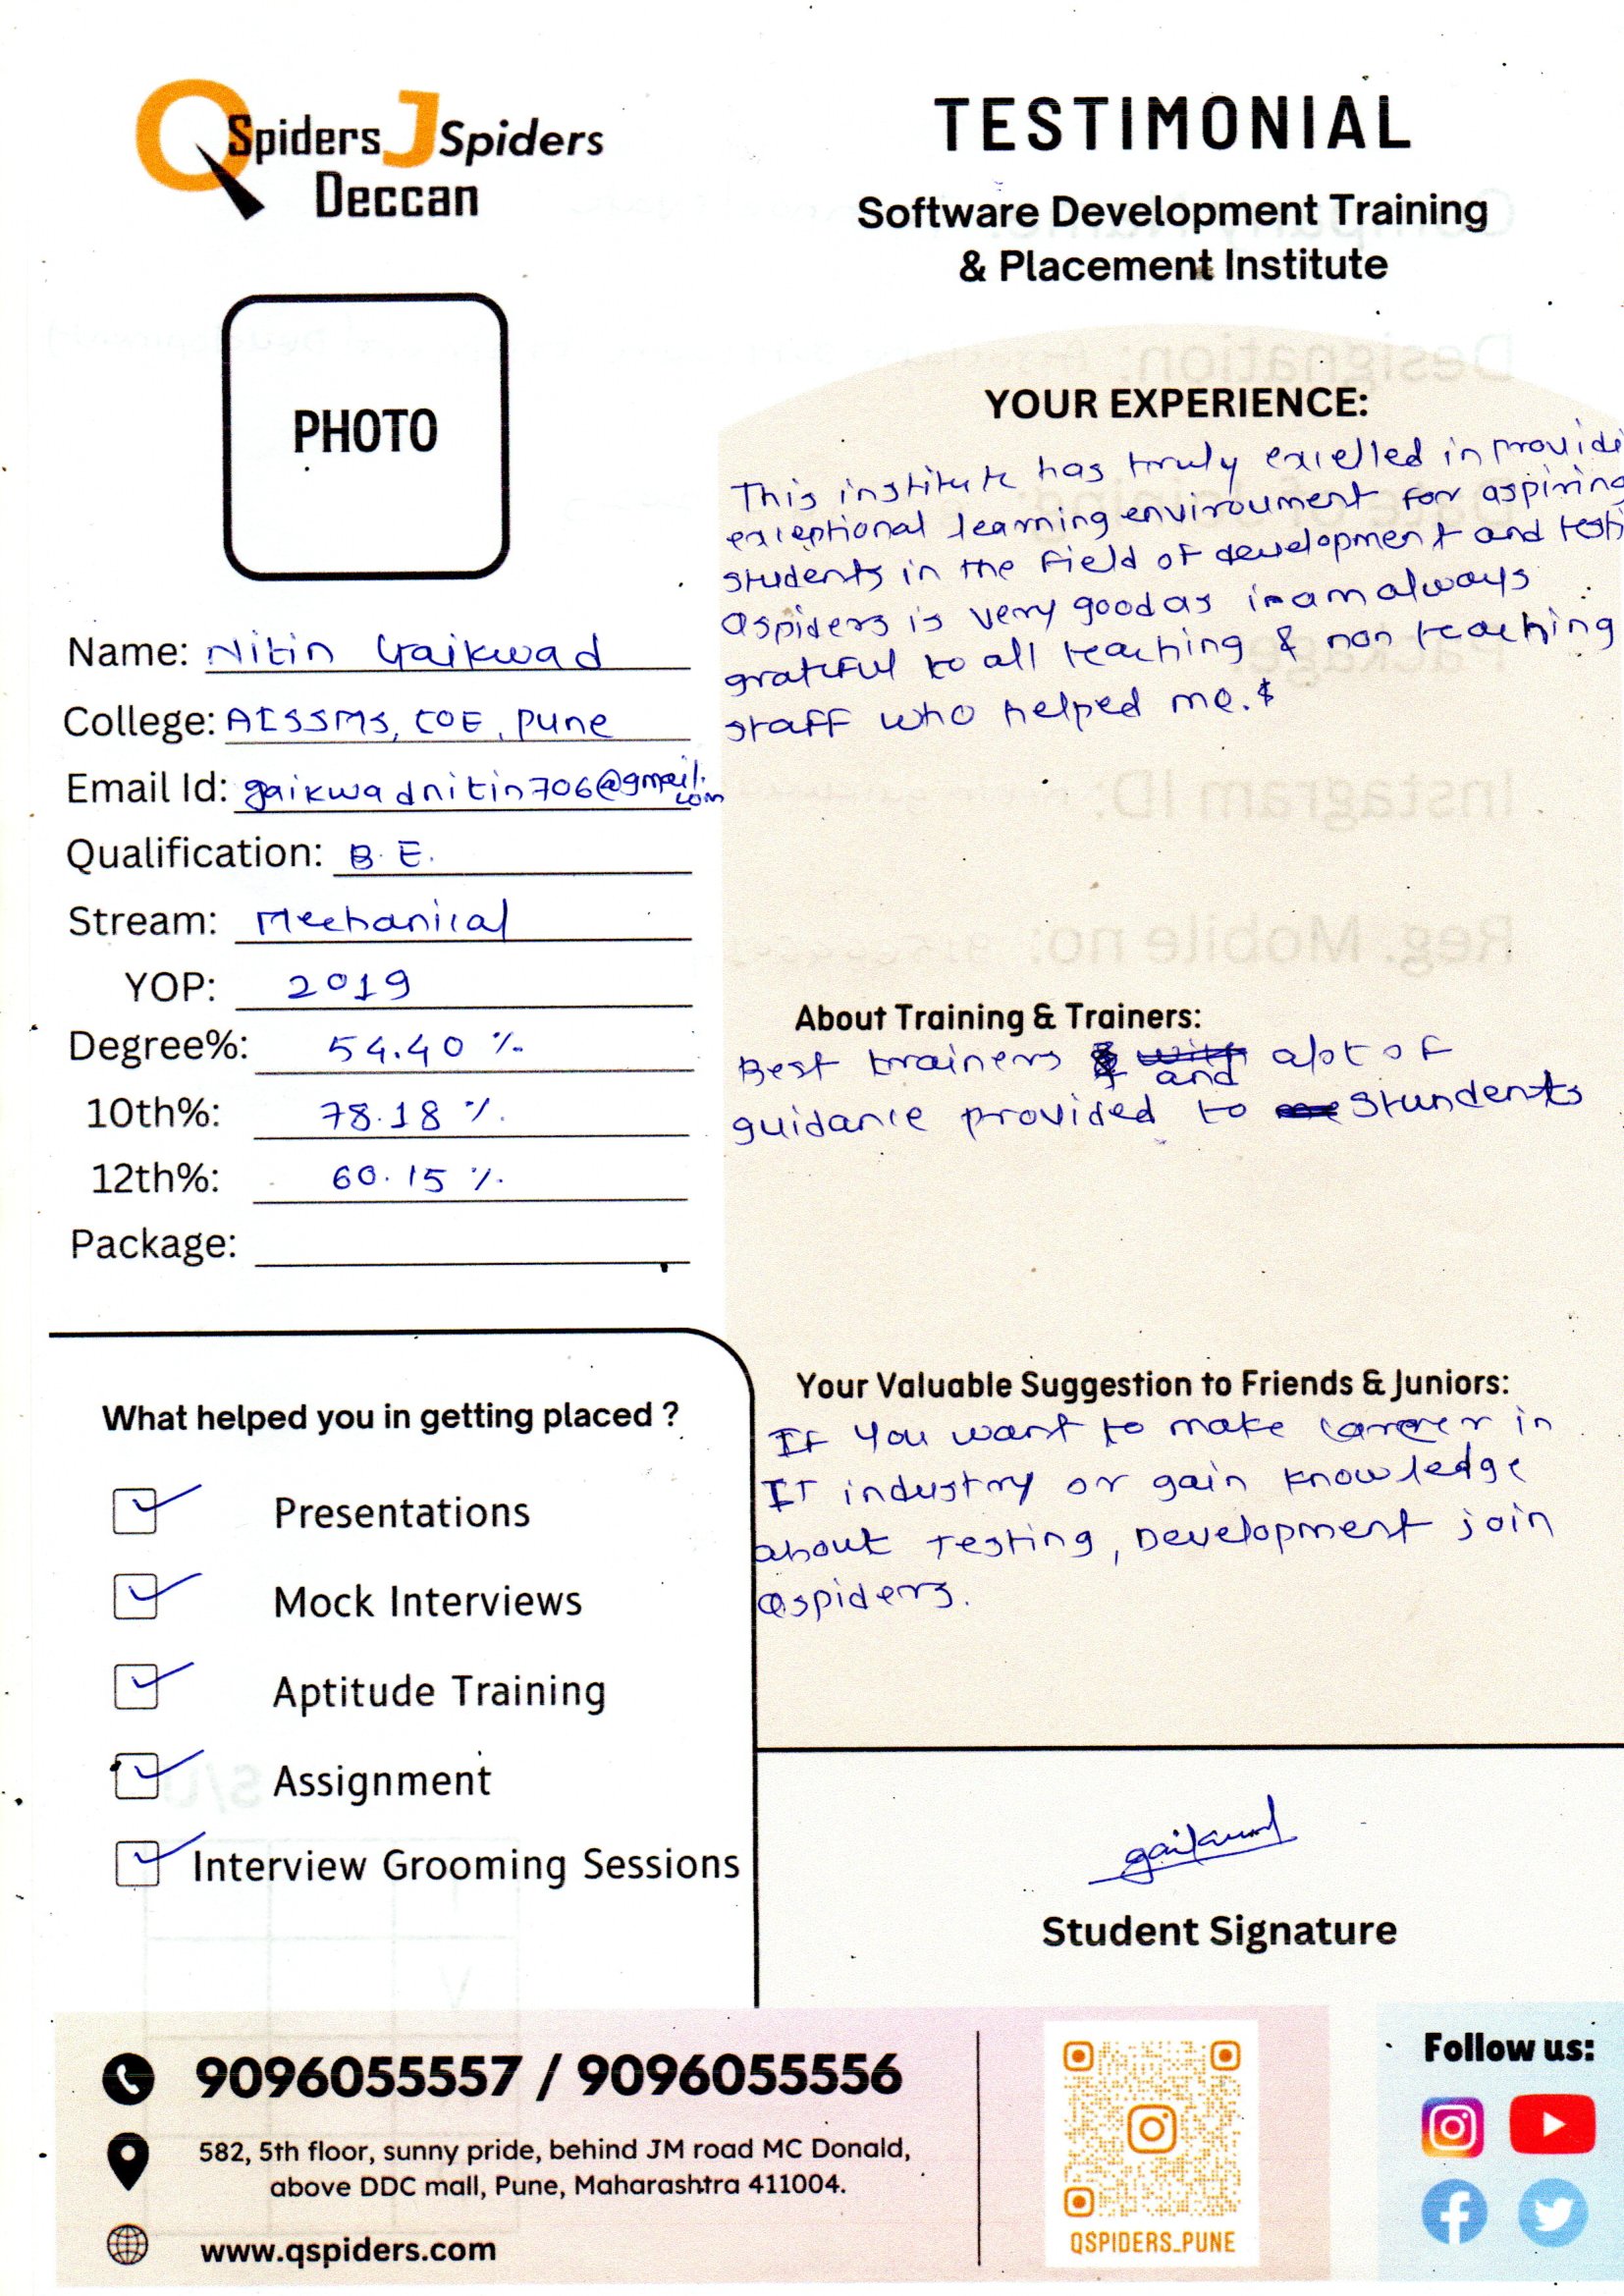 QSpiders JSpiders
Deccan
TESTIMONIAL
Software Development Training
& Placement Institute
PHOTO
Name: Nitin Gaikwad
College: AISSMS, COE, Pune
Email Id: gaikwadnitin706@gmail.
com
Qualification: B.E.
Stream: Mechanical
YOP: 2019
Degree%: 54.40 %
10th%: 78.18 %
12th%: 60.15 %
Package:
YOUR EXPERIENCE:
This institute has truly excelled in provide
exceptional learning enviroument for aspiring
students in the field of development and testi
Qspiders is very good as i am always
grateful to all teaching & non teaching
staff who helped me.
About Training & Trainers:
Best trainers and alot of
guidance provided to stundents
Your Valuable Suggestion to Friends & Juniors:
If you want to make carreer in
IT industry or gain knowledge
about Testing, Development join
Qspiders.
What helped you in getting placed ?
Presentations
Mock Interviews
Aptitude Training
Assignment
Interview Grooming Sessions
gaikwad
Student Signature
9096055557 / 9096055556
582, 5th floor, sunny pride, behind JM road MC Donald,
above DDC mall, Pune, Maharashtra 411004.
www.qspiders.com
QSPIDERS_PUNE
Follow us: